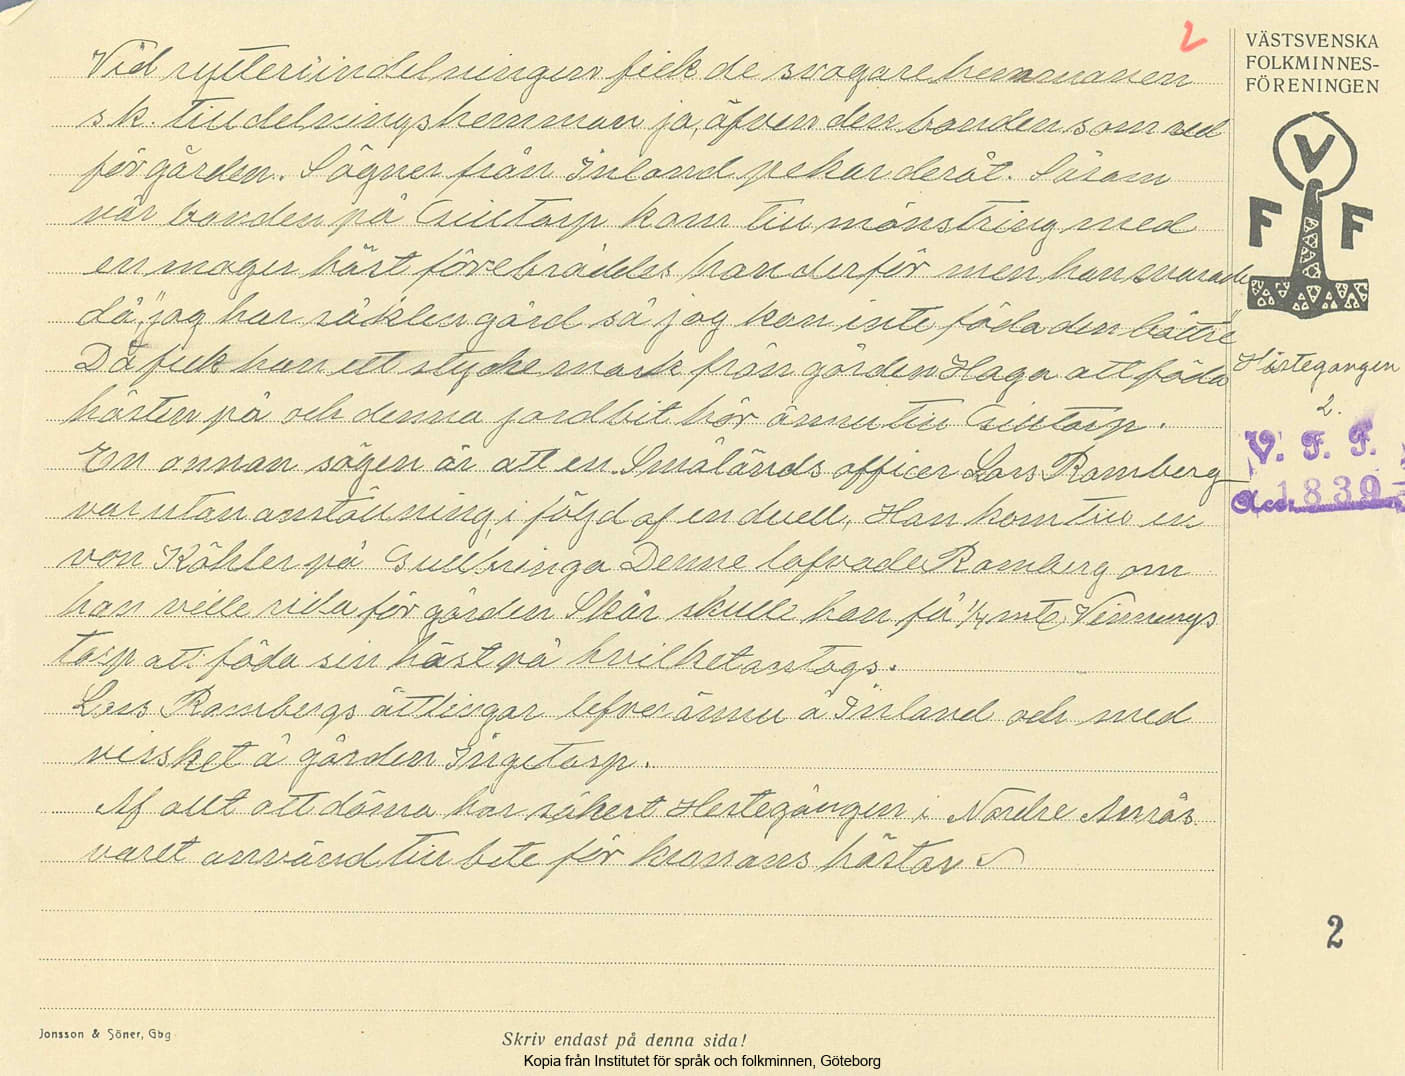 2
VÄSTSVENSKA
FOLKMINNES-
FÖRENINGEN
V
F F
Vid rytteriindelningen fick de svagare hemmanen
sk. tilldelningshemman ja, äfven den bonden som red
för gården. Sägner från Inland pekar deråt. Såsom
när bonden på Gilltorp kom till mönstring med
en mager häst förebråddes han derför men han svarade
då, "jag har säklen gård så jag kan inte föda den bättre"
Då fick han ett stycke mark från gården Haga att föda
hästen på och denna jordbit hör ännu till Gilltorp.
En annan sägen är att en Smålands officer Lars Ramberg
var utan anställning, i följd af en duell, Han kom till en
von Köhler på Gullbringa Denne lofvade Ramberg om
han ville rida för gården Skår skulle han få 1/4 mtl Vinnings
torp att föda sin häst på hvilket antogs.
Lars Rambergs ättlingar lefver ännu å Inland och med
visshet å gården Ingetorp.
Af allt att döma har säkert Hestegången i Nordre
varet använd till bete för kronans hästar
Hästegången
2.
V. F. F.
Acc. 1839
2
Jonsson & Söner, Gbg
Skriv endast på denna sida!
Kopia från Institutet för språk och folkminnen, Göteborg